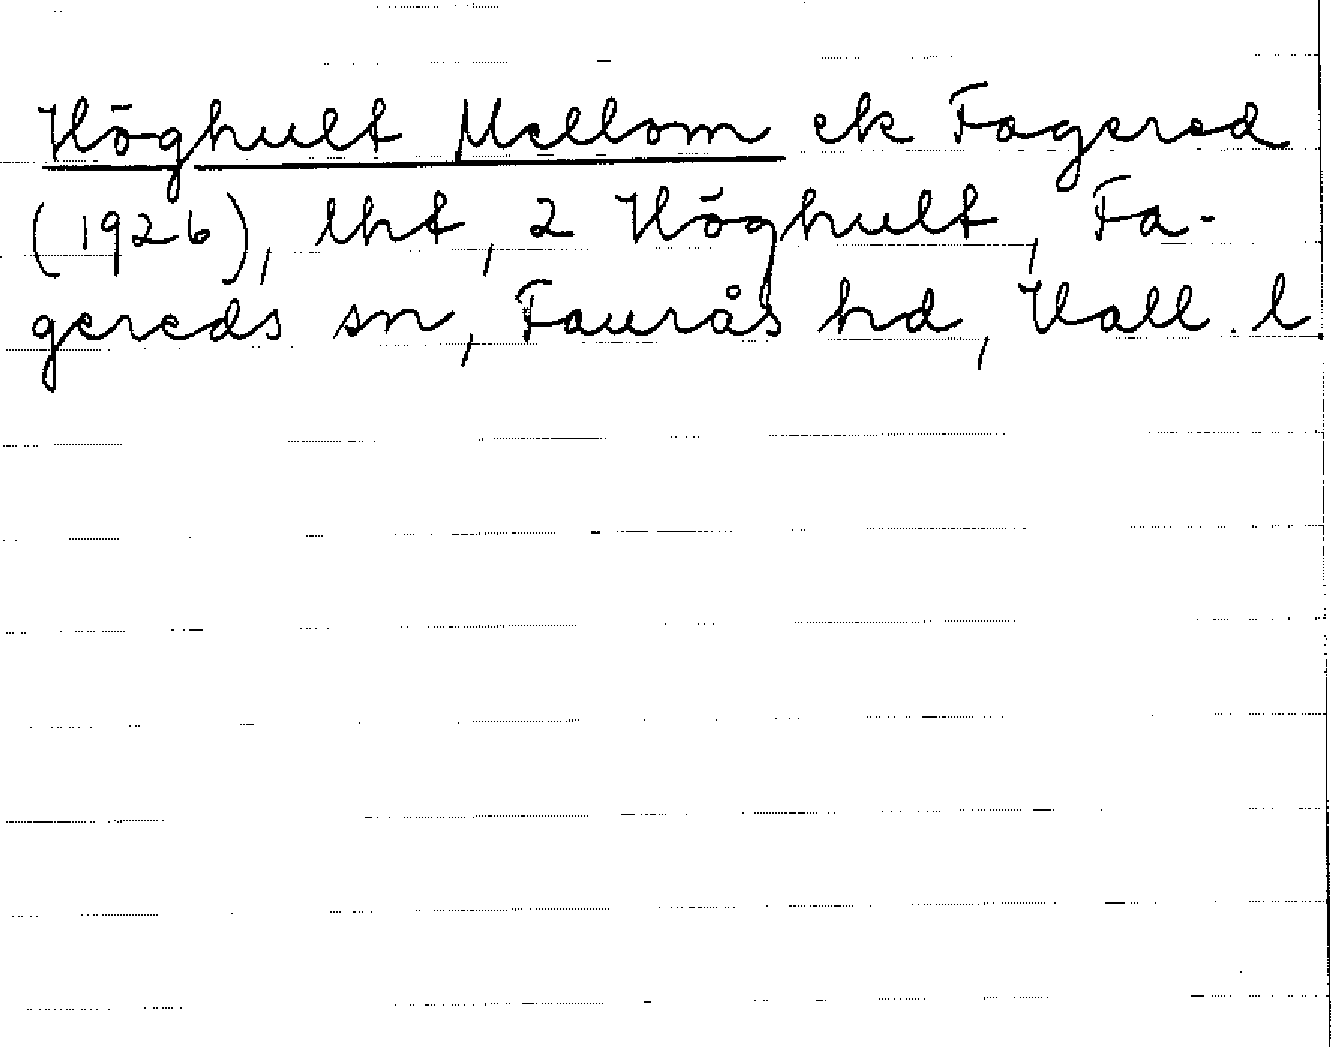 Höghult Mellom ek Fagered
(1926), lht, 2 Höghult, Fa-
gereds sn, Faurås hd, Hall. l.